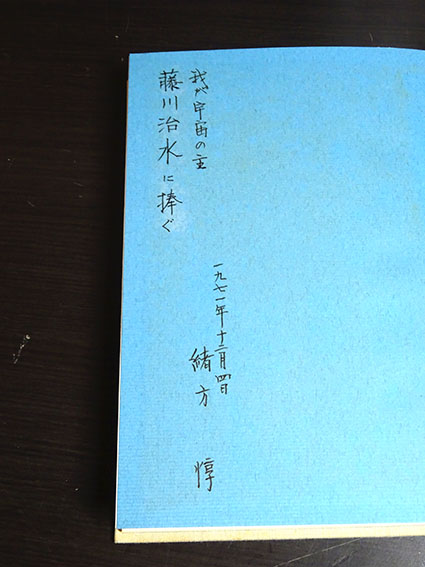 我が宇宙の主
藤川治水に捧ぐ
一九七一年十二月四日
緒方 惇